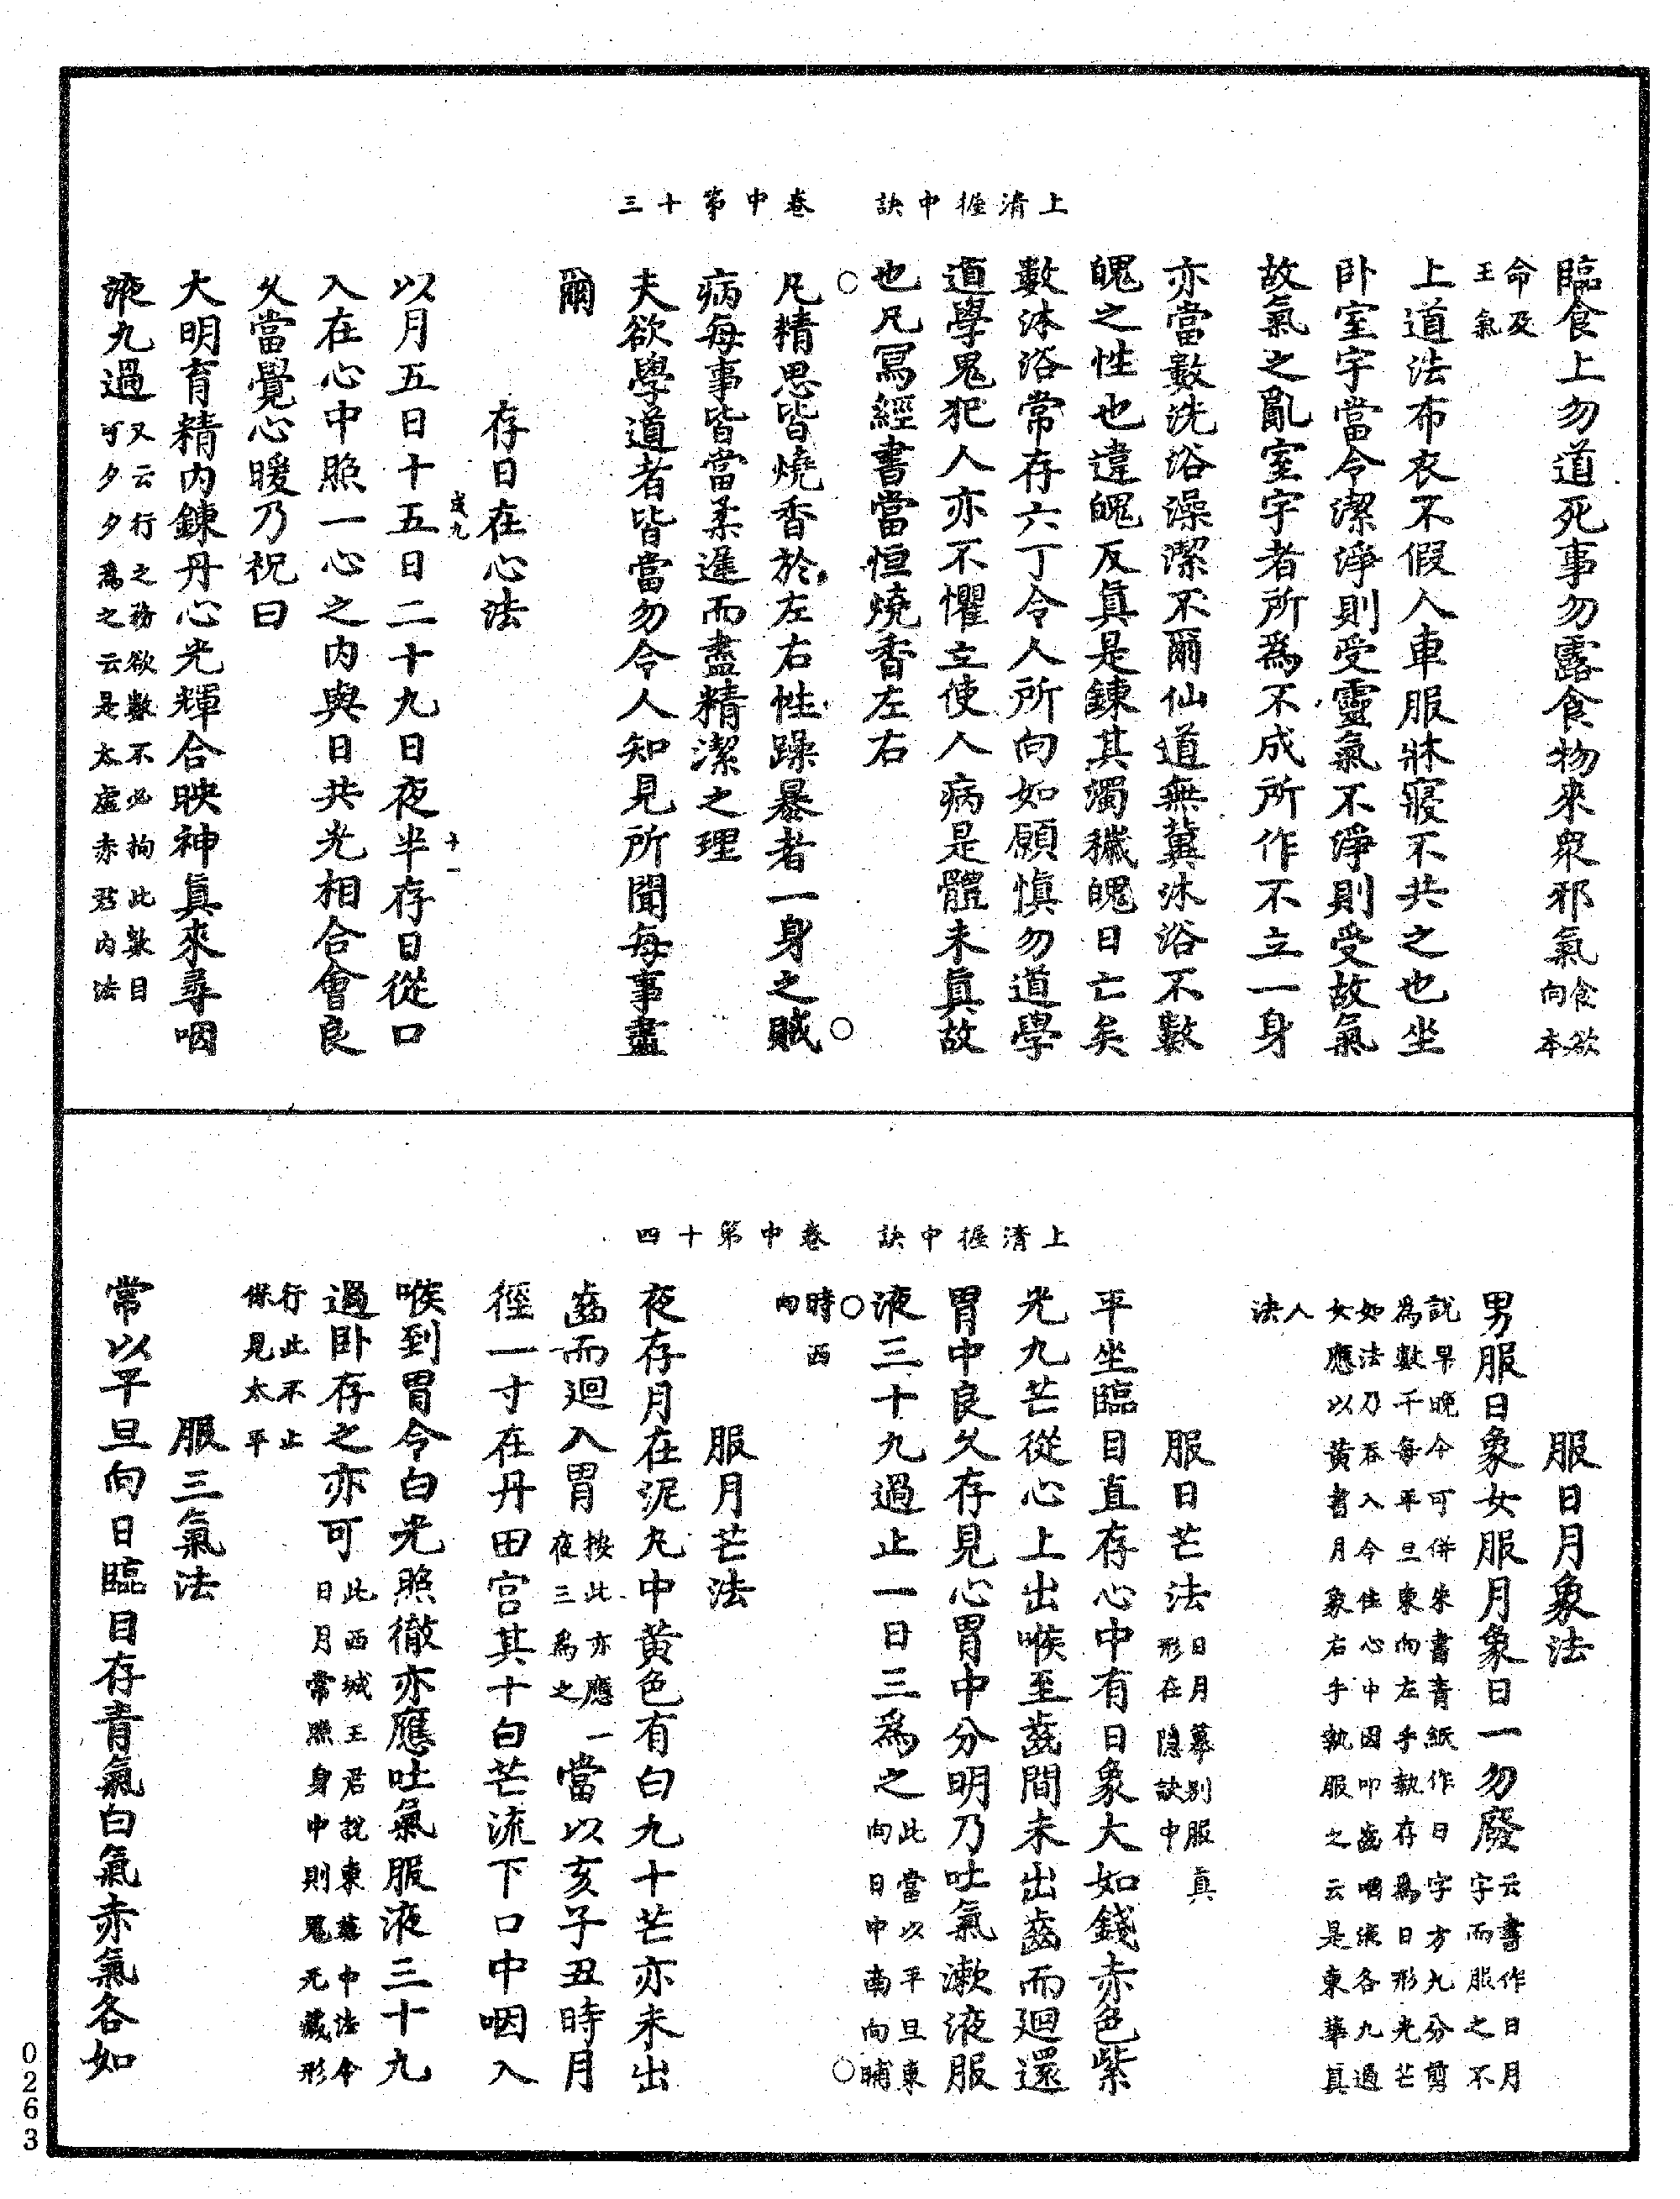 上清握中訣　卷中第十三
臨食上勿道死事勿露食物來眾邪氣食欲向本
命及王氣
上道法布衣不假人車服牀寢不共之也坐
卧室宇當令潔淨則受靈氣不淨則受故氣
故氣之亂室宇者所爲不成所作不立一身
亦當數洗浴澡潔不爾仙道無冀沐浴不數
魄之性也違魄反真是鍊其濁穢魄日亡矣
數沐浴常存六丁令人所向如願慎勿道學
道學鬼犯人亦不懼立使人病是體未真故
也凡寫經書當恒燒香左右
○凡精思皆燒香於左右性躁暴者一身之賊○
病每事皆當柔遲而盡精潔之理
夫欲學道者皆當勿令人知見所聞每事盡
爾
存日在心法
以月五日十五日二十九日夜半存日從口
或九
十一
入在心中照一心之內與日共光相合會良
久當覺心暖乃祝曰
大明育精內鍊丹心光輝合映神真來尋咽
液九過又云行之務欲數不必拘此數日可夕夕爲之云是太虛赤君內法
上清握中訣　卷中第十四
服日月象法
男服日象女服月象日一勿廢云書作日月字而服之不
說早晚今可併朱書青紙作日字方九分剪爲數千每平旦東向左手執存爲日形光芒
如法乃吞入令住心中因叩齒咽液各九過女應以黃書月象右手執服之云是東華真
人法
服日芒法日月摹別服真形在隱訣中
平坐臨目直存心中有日象大如錢赤色紫
光九芒從心上出喉至齒間未出齒而迴還
胃中良久存見心胃中分明乃吐氣漱液服
液三十九過止一日三爲之此當以平旦東向日中南向晡
○時西向○
服月芒法
夜存月在泥丸中黃色有白九十芒亦未出
齒而迴入胃按此亦應一夜三爲之當以亥子丑時月
徑一寸在丹田宮其十白芒流下口中咽入
喉到胃令白光照徹亦應吐氣服液三十九
過卧存之亦可此西城王君說東華中法令日月常照身中則鬼无藏形
行此不止保見太平
服三氣法
常以平旦向日臨目存青氣白氣赤氣各如
0263